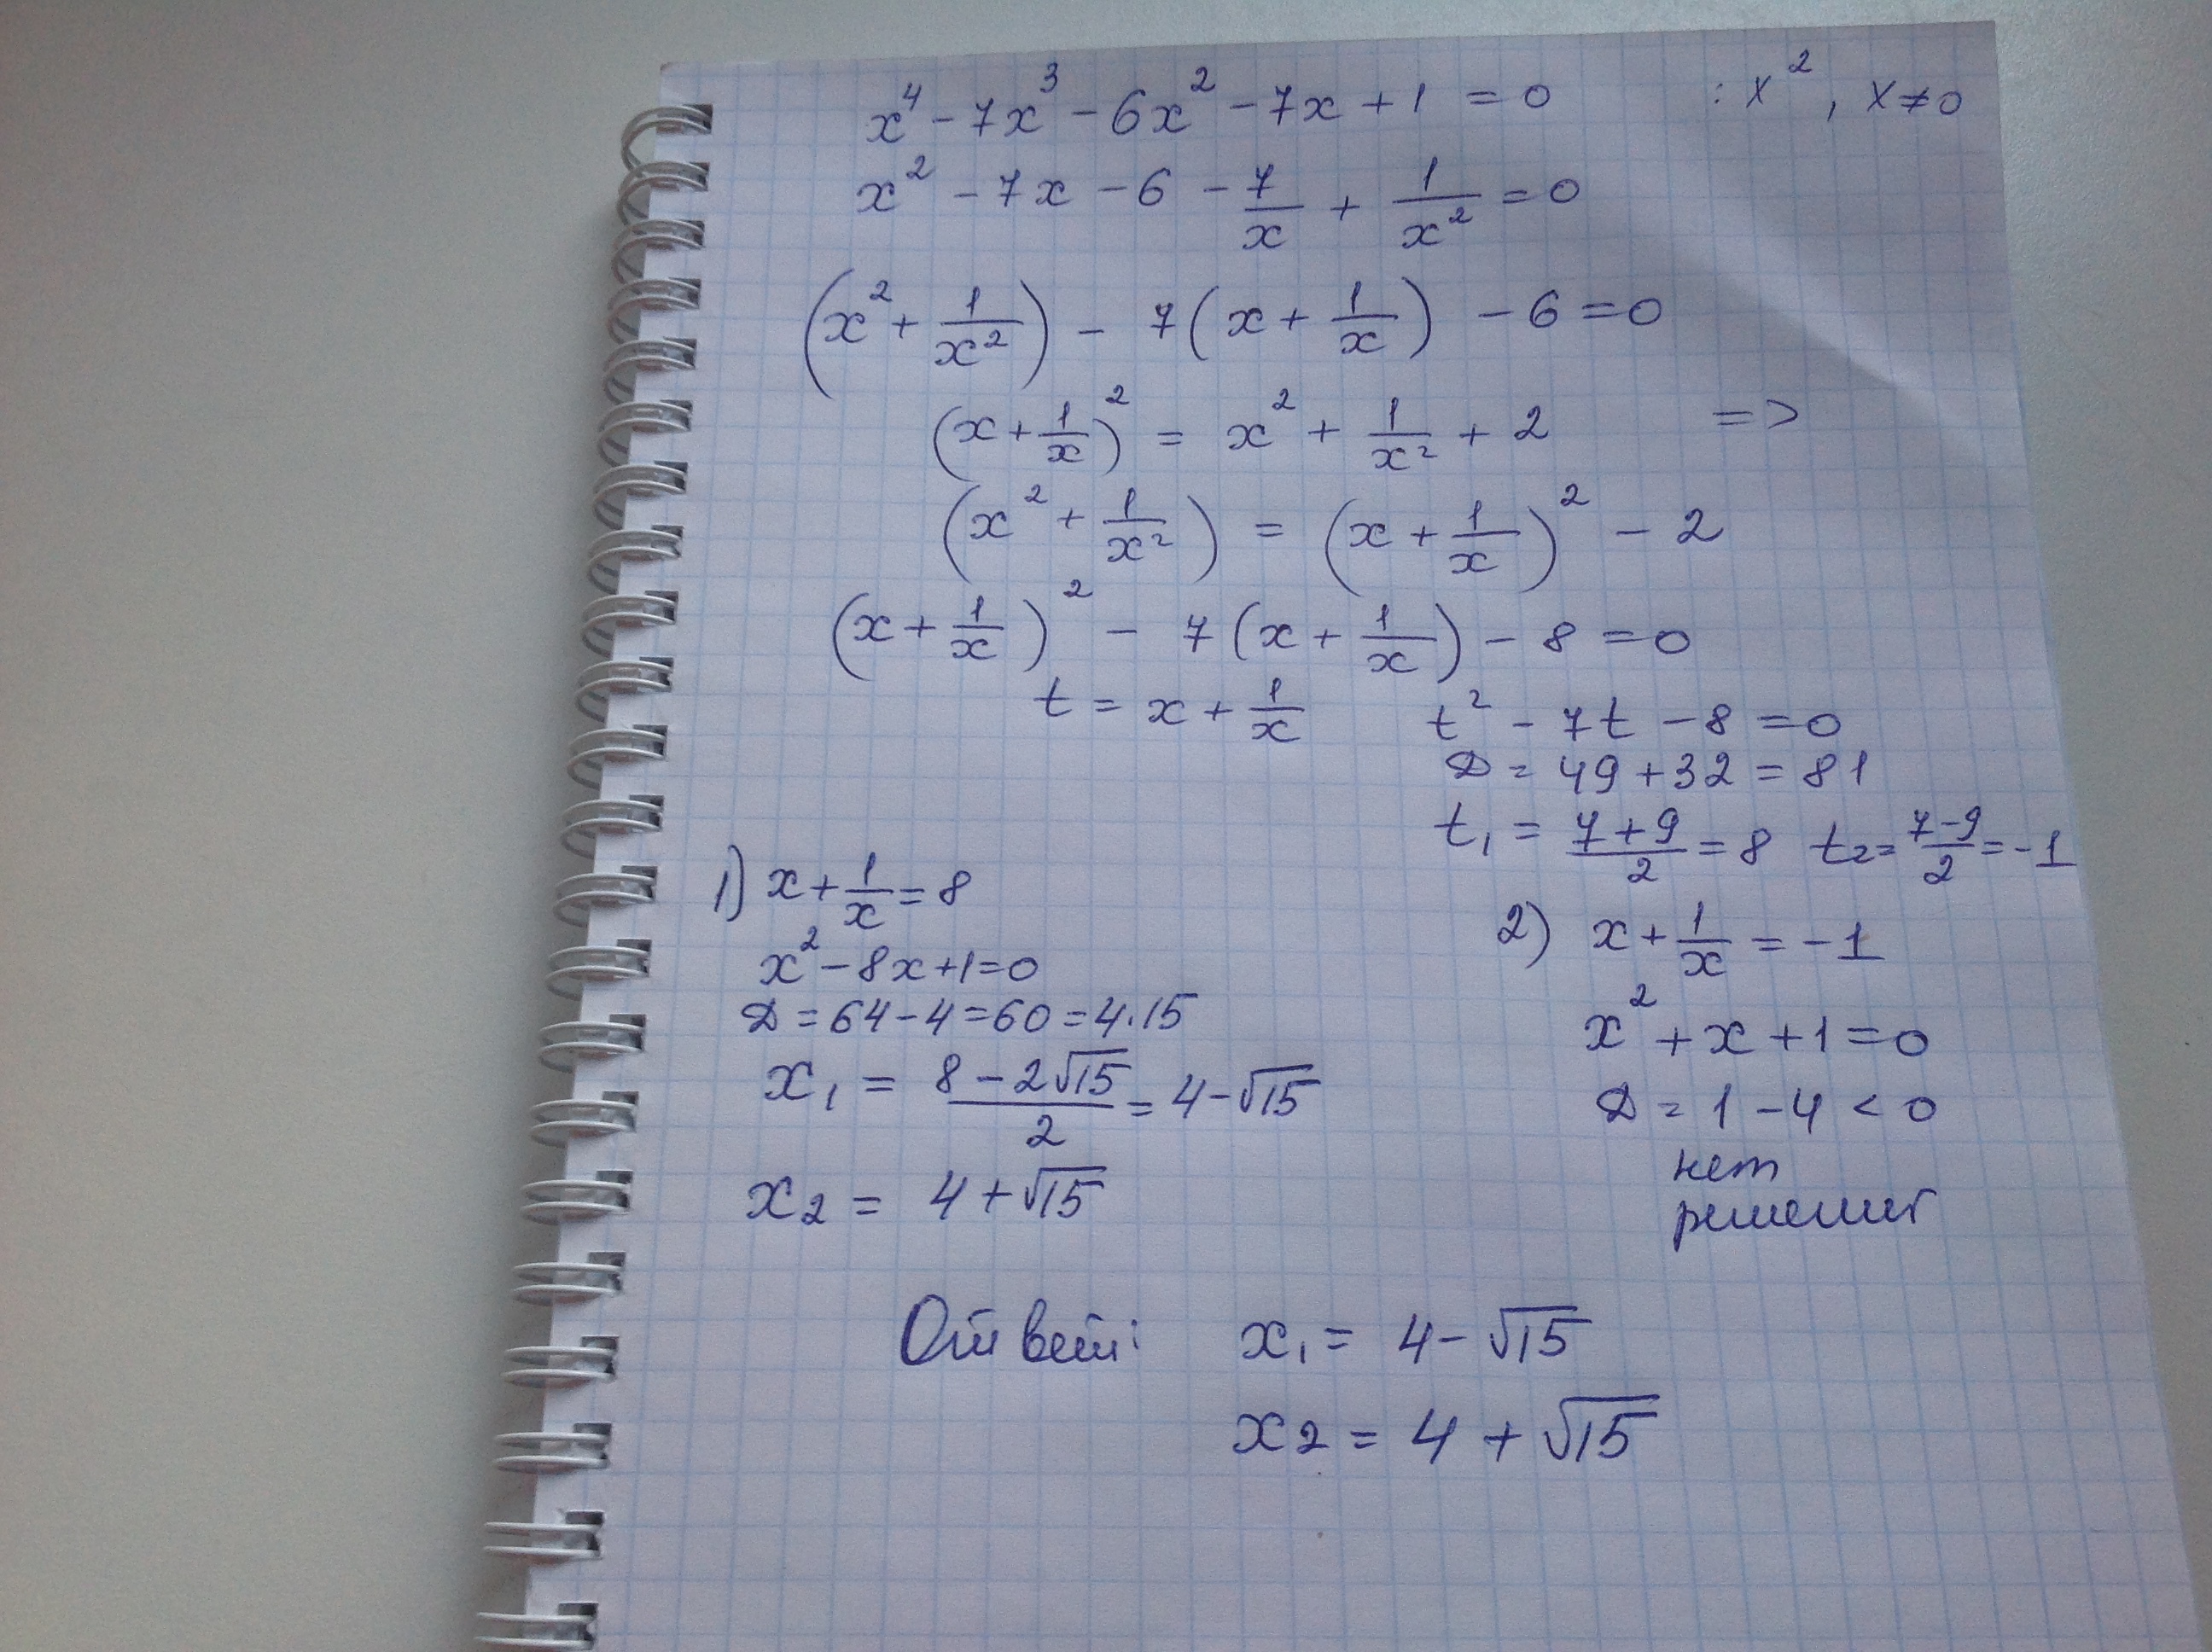 x⁴ - 7x³ - 6x² - 7x + 1 = 0 : x², x ≠ 0
x² - 7x - 6 - 7/x + 1/x² = 0
(x² + 1/x²) - 7(x + 1/x) - 6 = 0
(x + 1/x)² = x² + 1/x² + 2 =>
(x² + 1/x²) = (x + 1/x)² - 2
(x + 1/x)² - 7(x + 1/x) - 8 = 0
t = x + 1/x t² - 7t - 8 = 0
D = 49 + 32 = 81
t₁ = (7+9)/2 = 8 t₂ = (7-9)/2 = -1
1) x + 1/x = 8
x² - 8x + 1 = 0
D = 64 - 4 = 60 = 4·15
x₁ = (8 - 2√15)/2 = 4 - √15
x₂ = 4 + √15
2) x + 1/x = -1
x² + x + 1 = 0
D = 1 - 4 < 0
нет
решений
Ответ: x₁ = 4 - √15
x₂ = 4 + √15